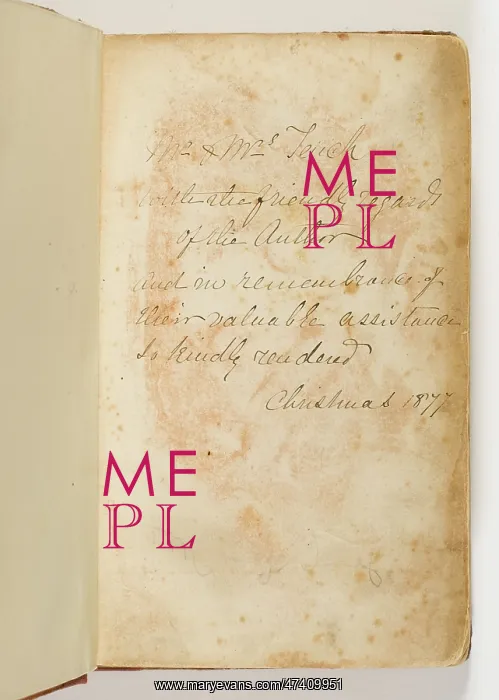 Mr. & Mrs Tench
with the friendly regards
of the Author
and in remembrance of
their valuable assistance
so kindly rendered
Christmas 1877
ME
PL
ME
PL
www.maryevans.com/47409951